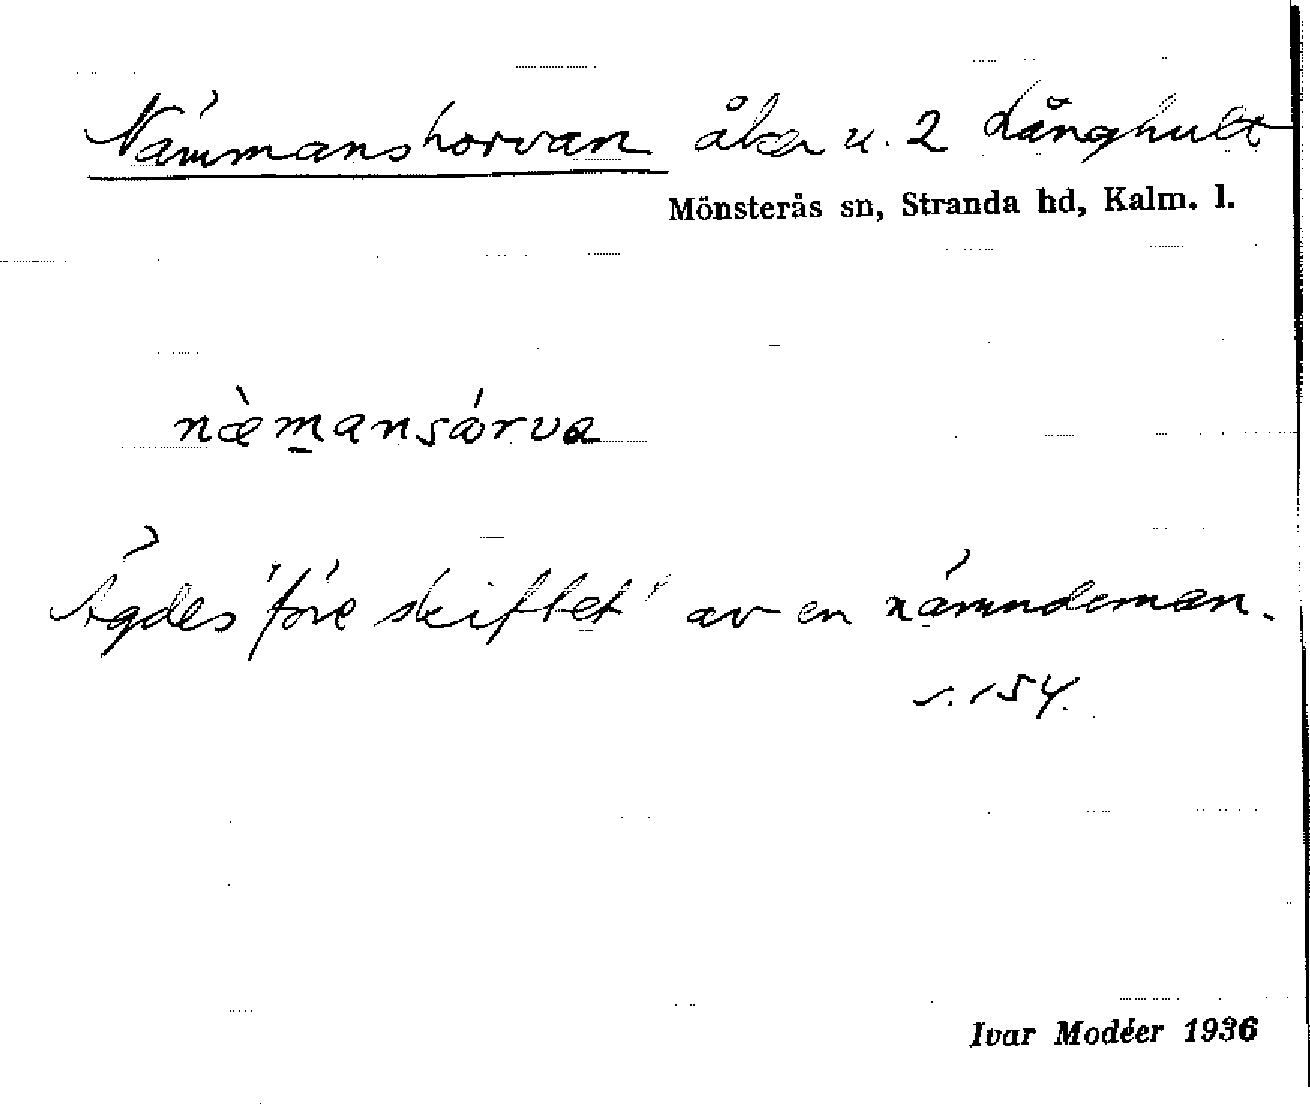 Nämmanshorvan åker u. 2 Långhult
Mönsterås sn, Stranda hd, Kalm. l.
næ̀m̠ansǿrva
Ägdes "före skiftet" av en nämndeman.
s. 154.
Ivar Modéer 1936